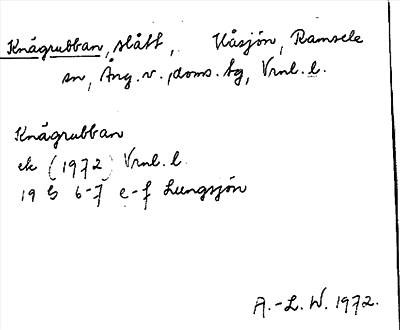 Knågrubban, slått, Håsjön, Ramsele
sn, Ång. v., doms. bg, Vrnl. l.
Knågrubban
ek (1972) Vrnl. l.
19 G 6-7 e-f Lungsjön
A.-L. W. 1972.